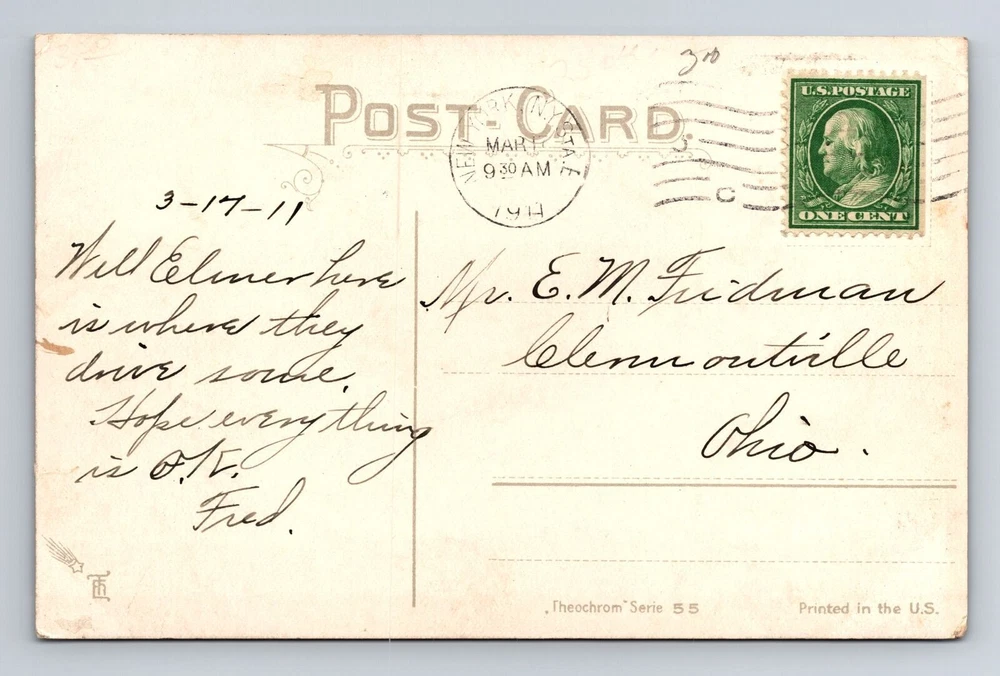 3rd
POST-CARD.
NEW YORK, N.Y. STA. A
MAR 17
9 30 AM
1911
C
U.S. POSTAGE
ONE CENT
3-17-11
Well Elmer here
is where they
drive some.
Hope everything
is O.K.
Fred.
Mr. E. M. Fridman
Glenmoutville
Ohio.
„Theochrom" Serie 55
Printed in the U.S.